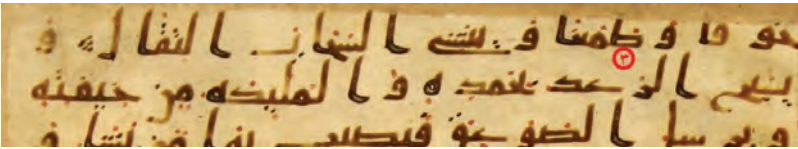 خوفا و طمعا و ينشئ السحاب الثقال و
يسبح الرعد بحمده و الملئكه من خيفته
و يرسل الصوعق فيصيب بها من يشا و
٣